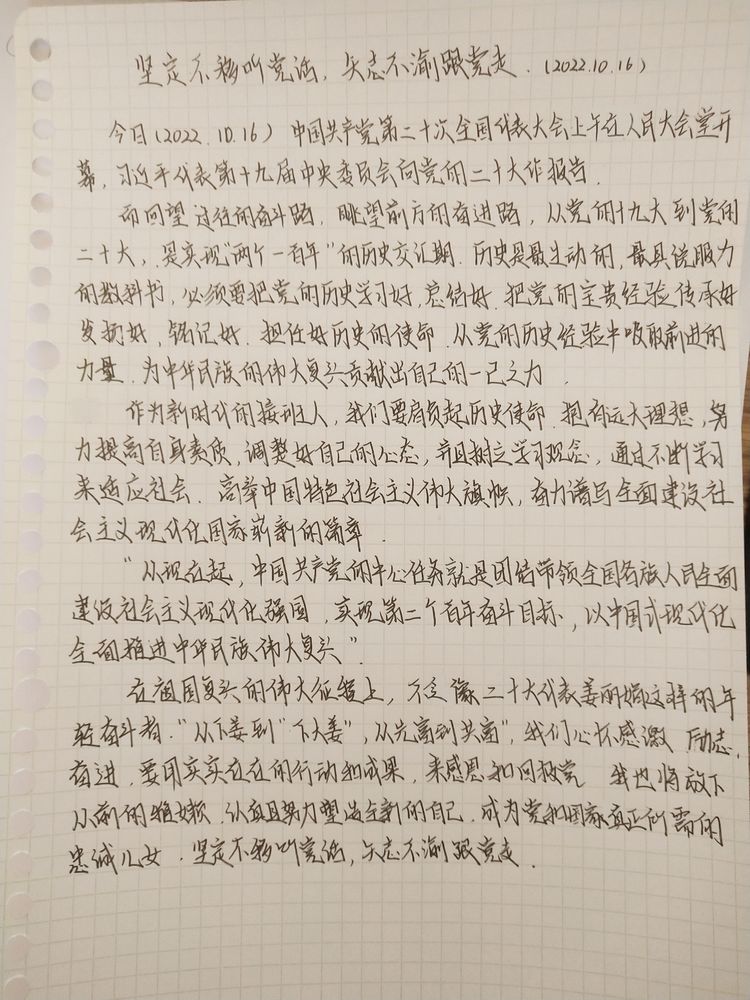 坚定不移听党话，矢志不渝跟党走．(2022.10.16)
今日(2022.10.16) 中国共产党第二十次全国代表大会上午在人民大会堂开
幕，习近平代表第十九届中央委员会向党的二十大作报告．
而回望过往的奋斗路．眺望前方的奋进路，从党的十九大到党的
二十大，是实现"两个一百年"的历史交汇期．历史是最生动的，最具说服力
的教科书，必须要把党的历史学习好，总结好．把党的宝贵经验传承好
发扬好，铭记好．担任好历史的使命．从党的历史经验中吸取前进的
力量．为中华民族的伟大复兴贡献出自己的一己之力．
作为新时代的接班人，我们要肩负起历史使命．抱有远大理想，努
力提高自身素质，调整好自己的心态，并且树立学习观念，通过不断学习
来适应社会．高举中国特色社会主义伟大旗帜，奋力谱写全面建设社
会主义现代化国家崭新的篇章．
"从现在起，中国共产党的中心任务就是团结带领全国各族人民全面
建设社会主义现代化强国，实现第二个百年奋斗目标，以中国式现代化
全面推进中华民族伟大复兴"．
在祖国复兴的伟大征程上，不乏像二十大代表姜丽娟这样的年
轻奋斗者．"从下姜到"下大姜"，从先富到共富"，我们心怀感激 励志，
奋进．要用实实在在的行动和成果，来感恩和回报党 我也将放下
从前的稚嫩．认真且努力塑造全新的自己．成为党和国家真正所需的
忠诚儿女．坚定不移听党话，矢志不渝跟党走．